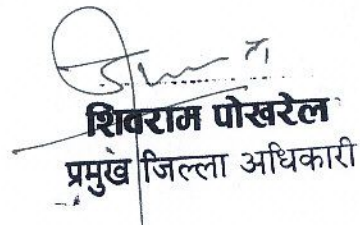 शिवराम पोखरेल
प्रमुख जिल्ला अधिकारी